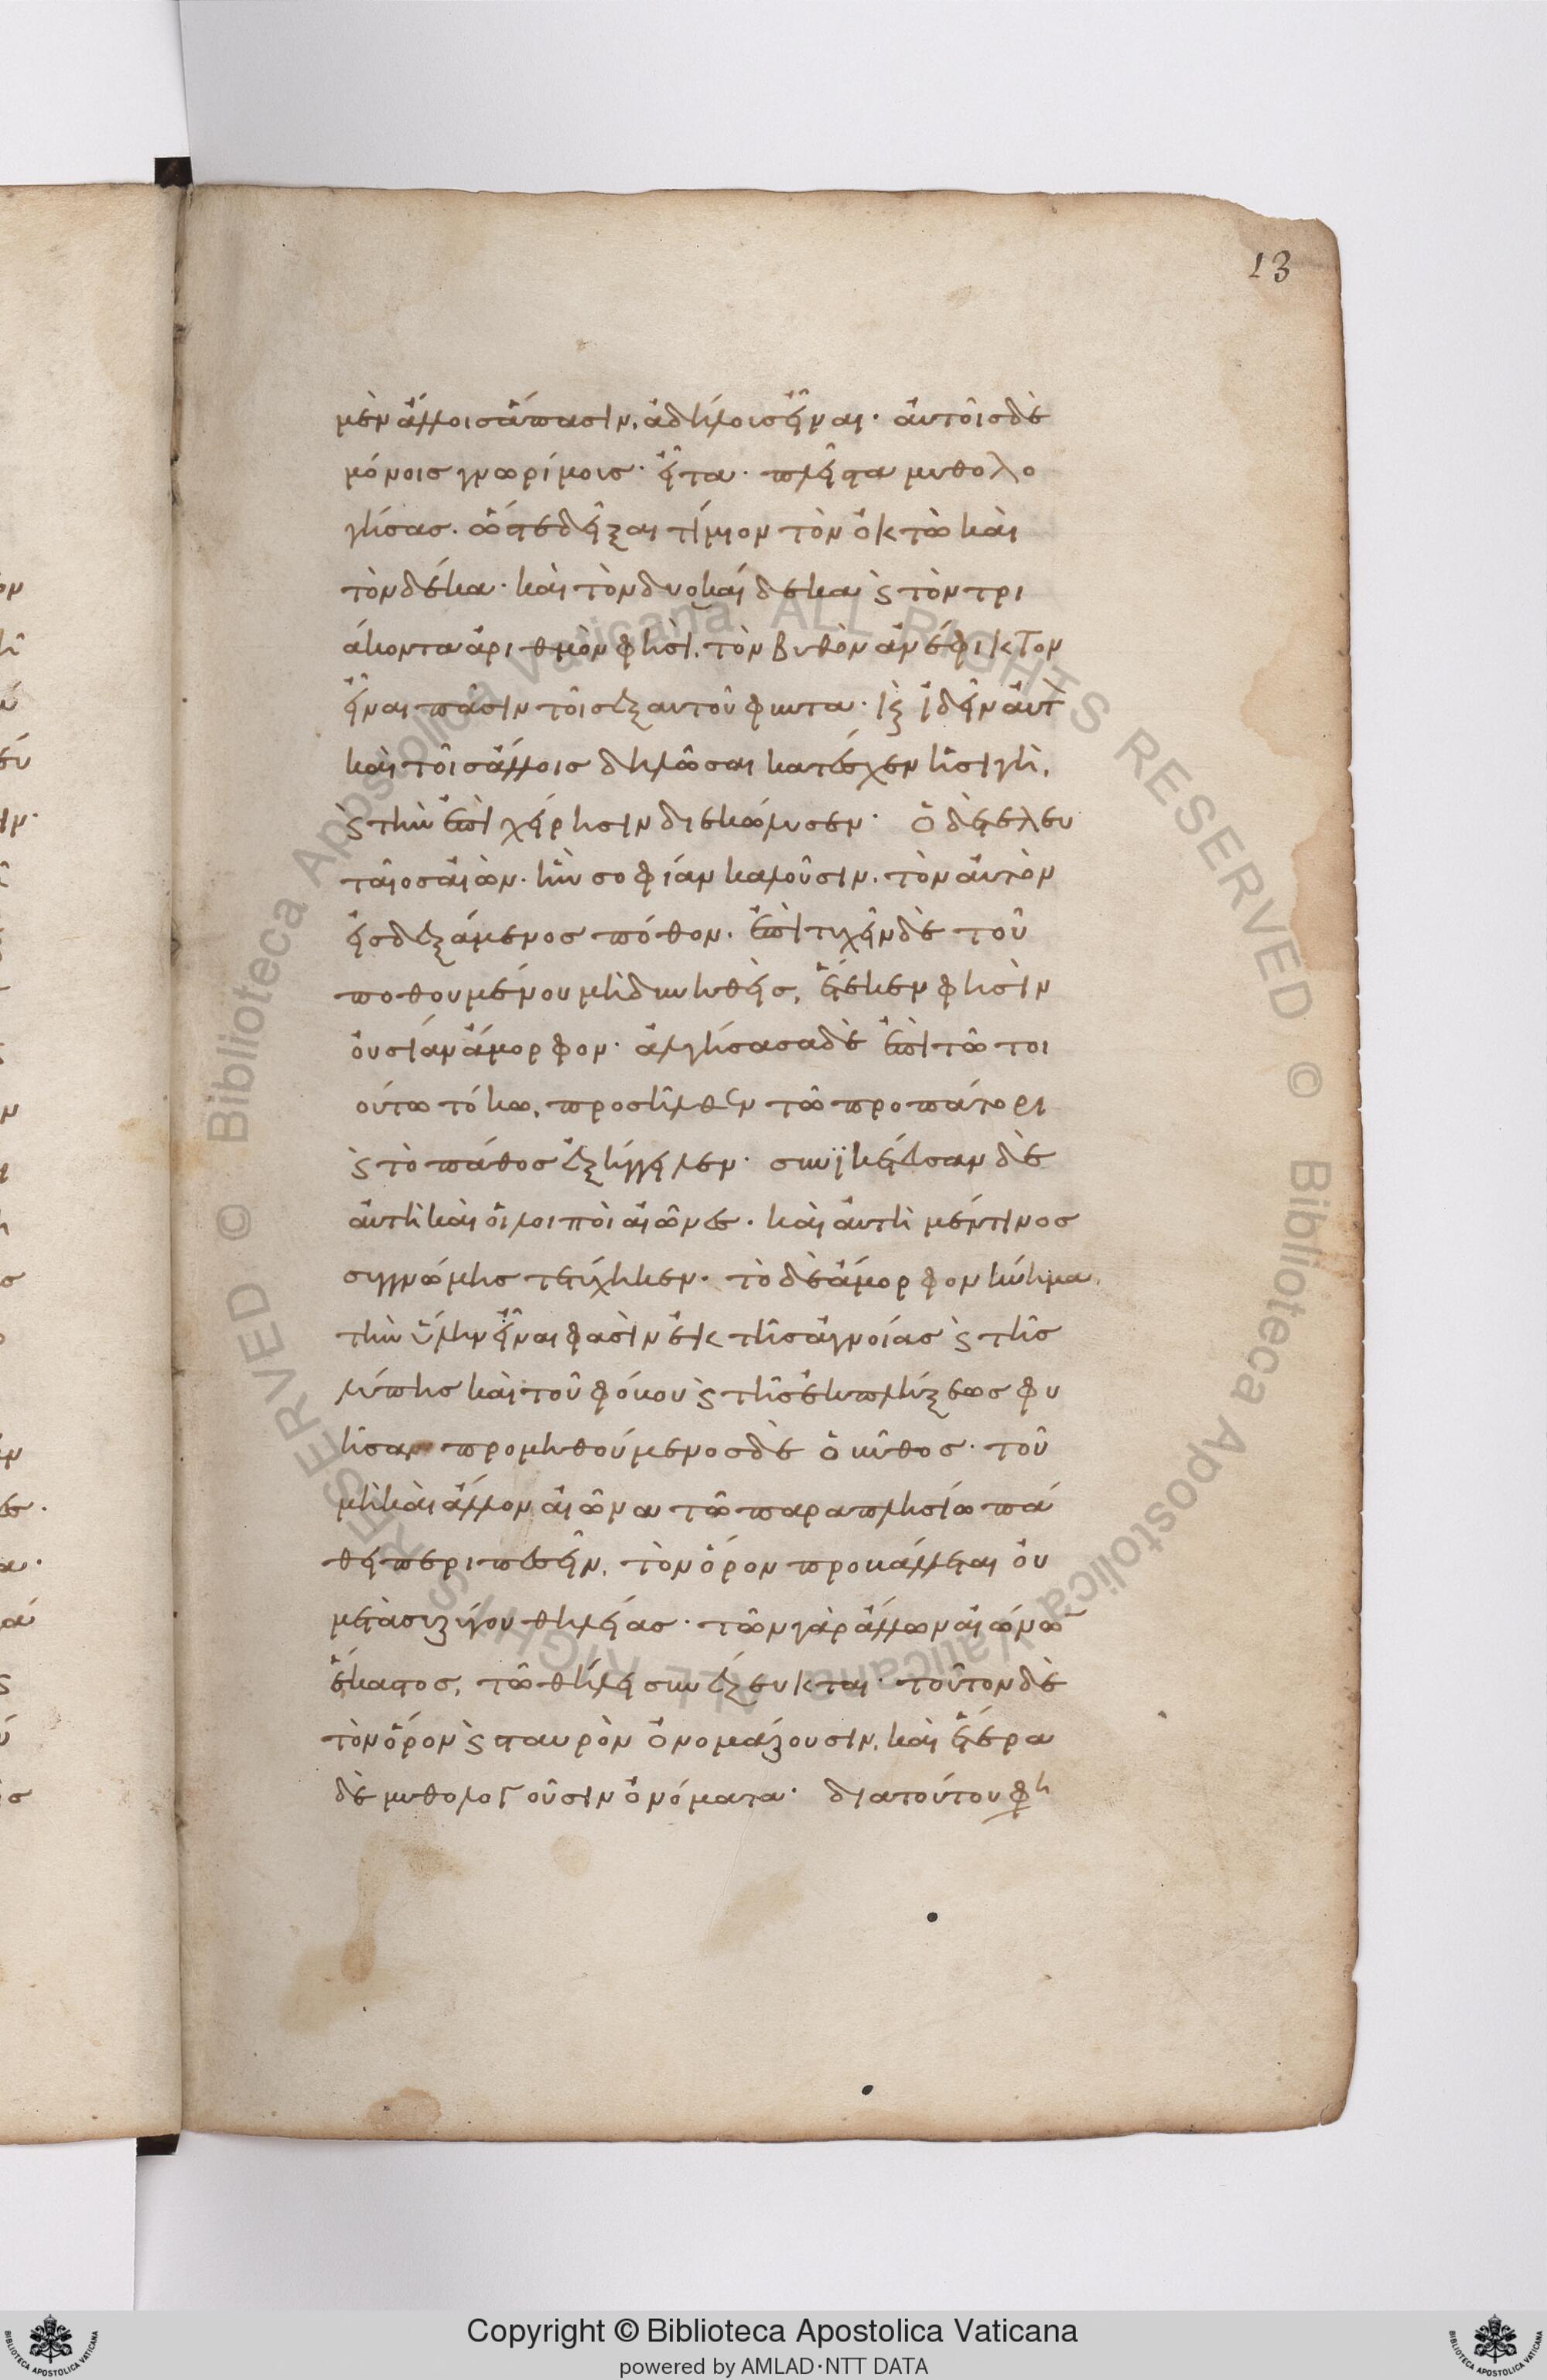 13
μὲν ἄλλοις ἅπασιν, ἀδήλοις εἶναι· αὐτοῖς δὲ
μόνοις γνωρίμοις· εἶτα· πλεῖστα μυθολο
γήσας· ὥστε δεῖξαι τίμιον τὸν ὀκτὼ καὶ
τὸν δέκα· καὶ τὸν δυοκαίδεκα ϛ τὸν τρι
άκοντα ἀριθμὸν φησὶ, τὸν βυθὸν ἀνέφικτον
εἶναι πᾶσιν τοῖς ἐξ αὐτοῦ φῦντα·
καὶ τοῖς ἄλλοις δηλῶσαι κατέσχεν ἡ σιγὴ,
ϛ τὴν ἐπιχείρησιν διεκώλυσεν· ὁ δὲ τελευ
ταῖος αἰὼν· ἣν σοφίαν καλοῦσιν, τὸν αὐτὸν
εἰσδεξάμενος πόθον, ἐπιτυχεῖν δὲ τοῦ
ποθουμένου μὴ δυνηθεὶς, ἔτεκεν φησὶν
οὐσίαν ἄμορφον· ἀλγήσασα δὲ ἐπὶ τῶ τοι
ούτω τόκω, προσῆλθεν τῶ προπάτορι
ϛ τὸ πάθος ἐξήγγειλεν· συνϊκέτευσαν δὲ
αὐτῆ καὶ οἱ λοιποὶ αἰῶνες· καὶ αὐτὴ μέντινος
συγγνώμης τετύχηκεν· τὸ δὲ ἄμορφον κύημα,
τὴν ὕλην εἶναι φασὶν ἐκ τῆς ἀγνοίας ϛ τῆς
λύπης καὶ τοῦ φόβου ϛ τῆς ἐκπλήξεως φυ
εῖσαν προμηθούμενος δὲ ὁ βυθὸς· τοῦ
μὴ καὶ ἄλλον αἰῶνα τῶ παραπλησίω πά
θει περιπεσεῖν, τὸν ὅρον προβάλλεται οὐ
μετὰ συζύγου θηλείας· τῶν γὰρ ἄλλων αἰώνω̅
ἕκαστος, τῶ θήλει συνέζευκται· τοῦτον δὲ
τὸν ὅρον ϛ σταυρὸν ὀνομάζουσιν, καὶ ἕτερα
δὲ μυθολογοῦσιν ὀνόματα· διατούτου φη
Copyright © Biblioteca Apostolica Vaticana
powered by AMLAD·NTT DATA